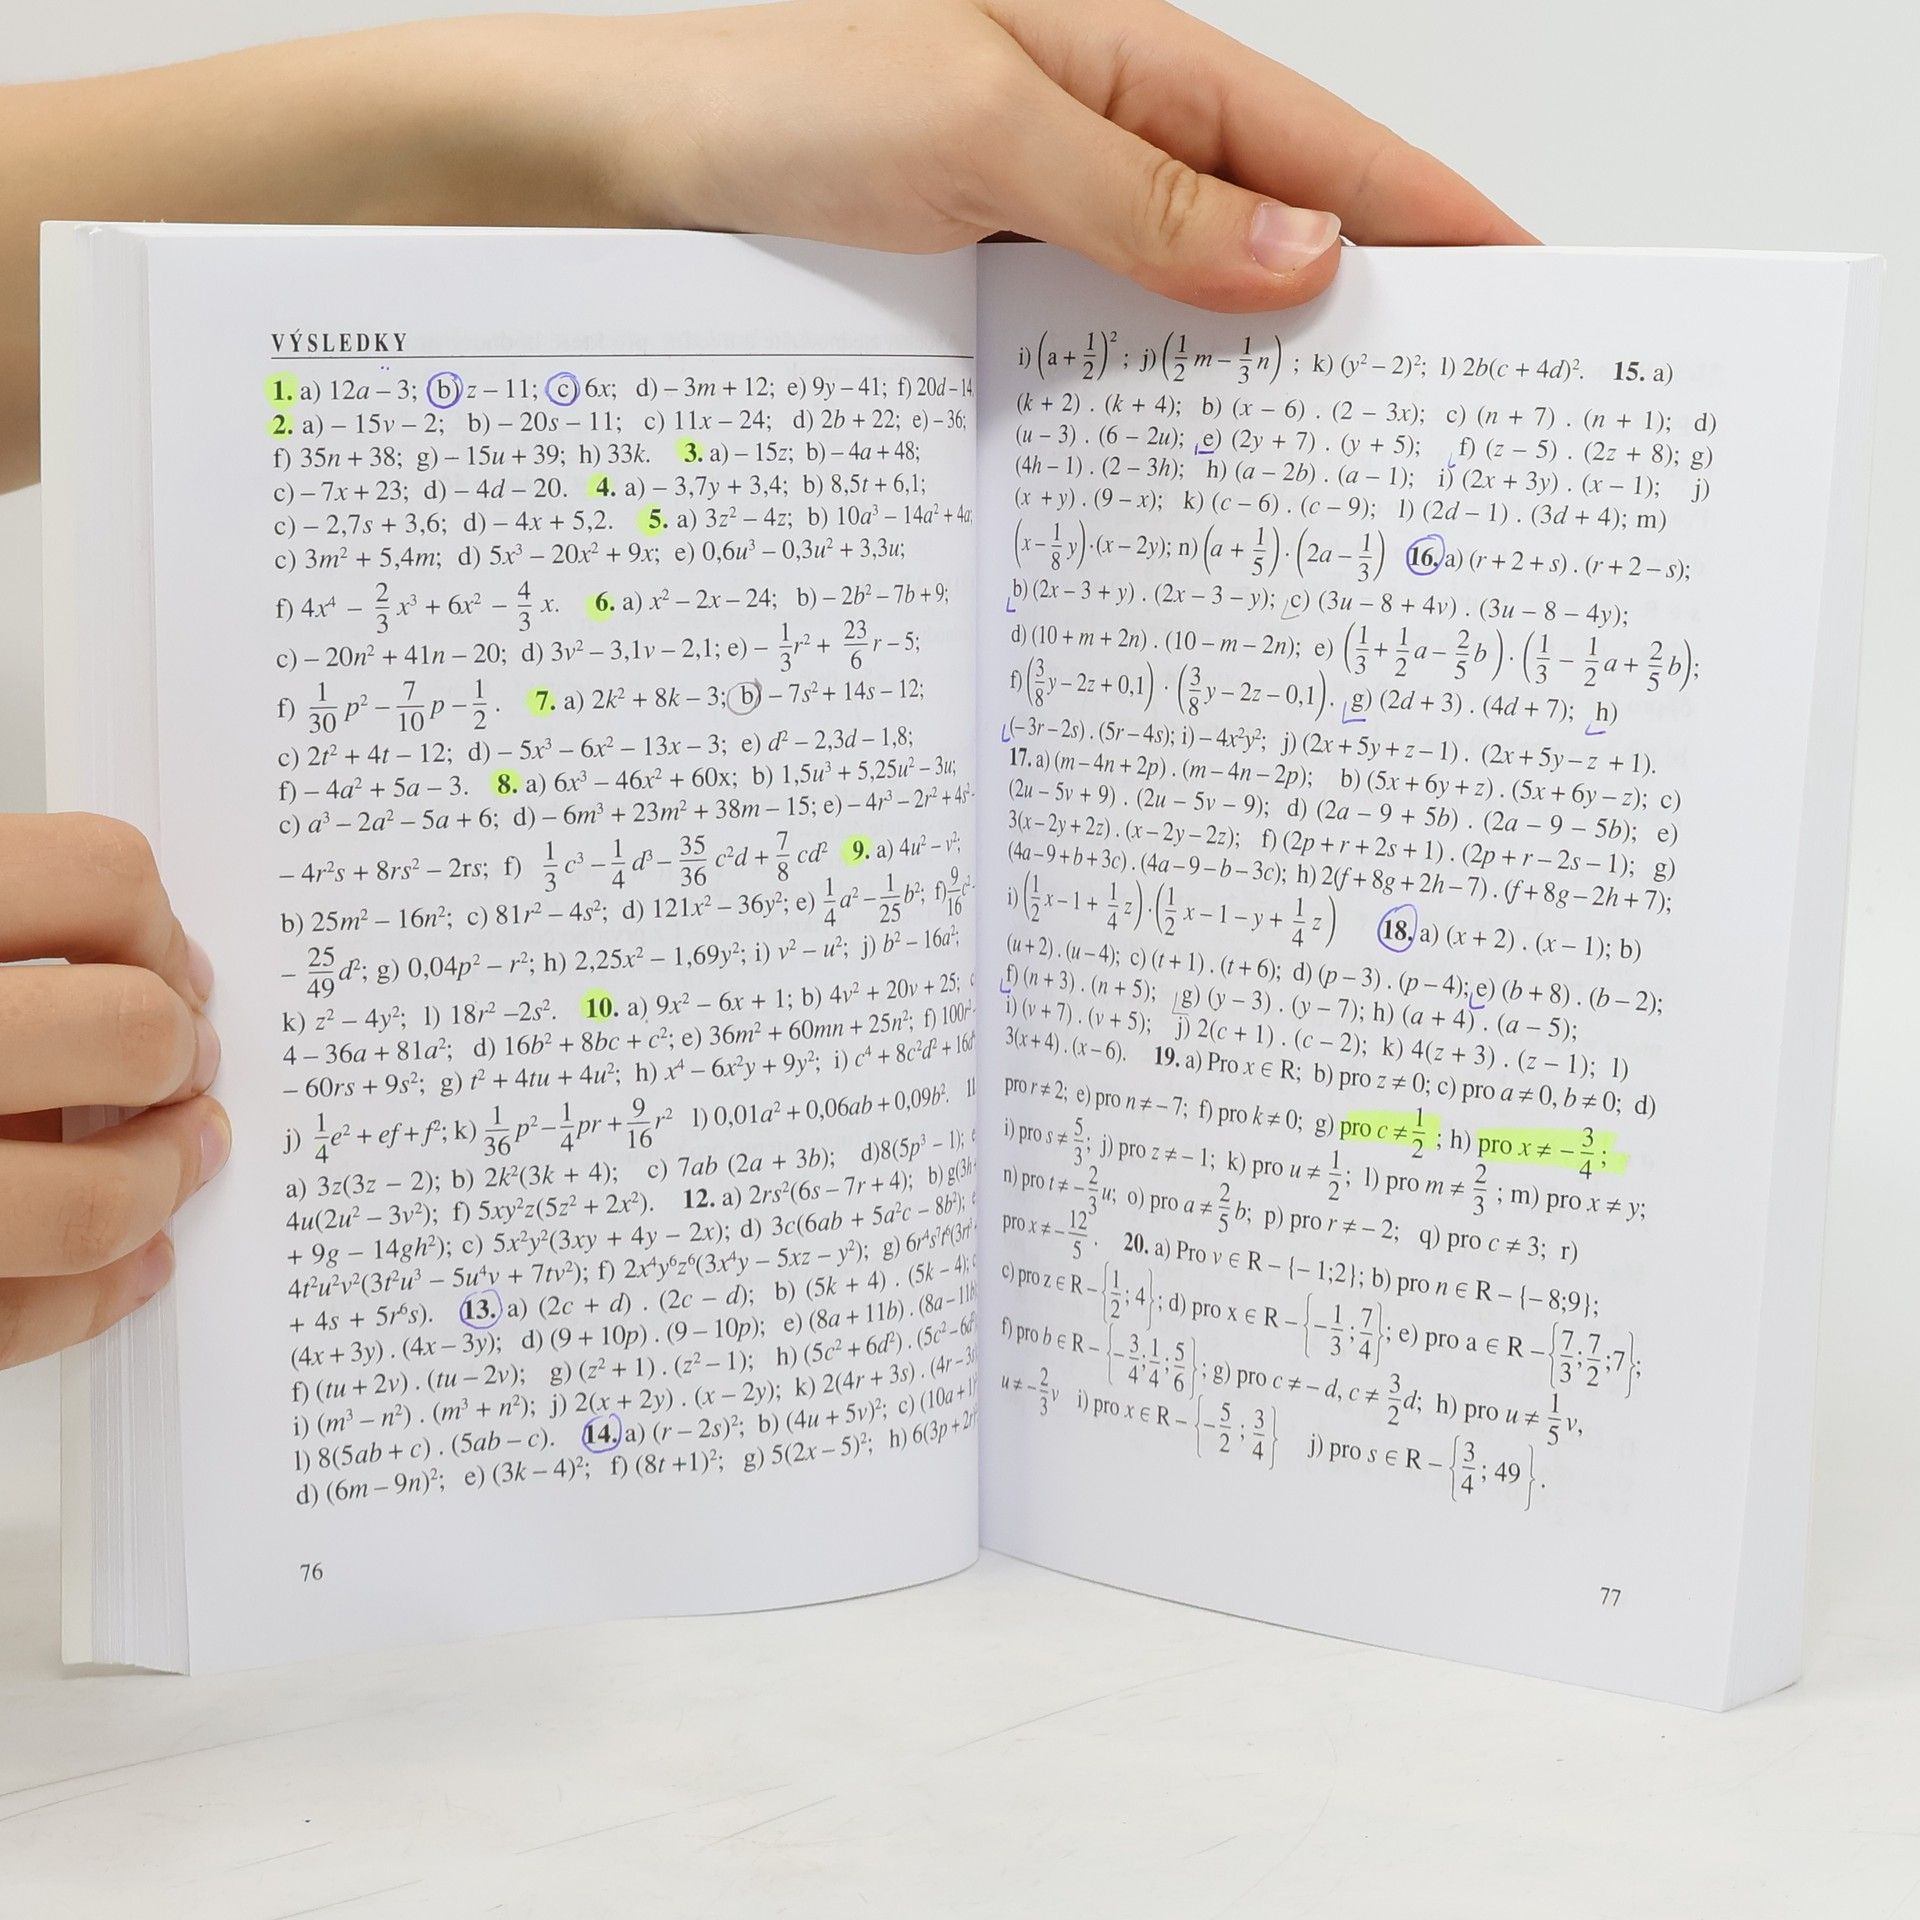 VÝSLEDKY
1. a) 12a – 3; b) z – 11; c) 6x; d) – 3m + 12; e) 9y – 41; f) 20d – 14
2. a) – 15v – 2; b) – 20s – 11; c) 11x – 24; d) 2b + 22; e) – 36;
f) 35n + 38; g) – 15u + 39; h) 33k. 3. a) – 15z; b) – 4a + 48;
c) – 7x + 23; d) – 4d – 20. 4. a) – 3,7y + 3,4; b) 8,5t + 6,1;
c) – 2,7s + 3,6; d) – 4x + 5,2. 5. a) 3z² – 4z; b) 10a³ – 14a² + 4a;
c) 3m² + 5,4m; d) 5x³ – 20x² + 9x; e) 0,6u³ – 0,3u² + 3,3u;
f) 4x⁴ – 2/3 x³ + 6x² – 4/3 x. 6. a) x² – 2x – 24; b) – 2b² – 7b + 9;
c) – 20n² + 41n – 20; d) 3v² – 3,1v – 2,1; e) – 1/3 r² + 23/6 r – 5;
f) 1/30 p² – 7/10 p – 1/2 . 7. a) 2k² + 8k – 3; b) – 7s² + 14s – 12;
c) 2t² + 4t – 12; d) – 5x³ – 6x² – 13x – 3; e) d² – 2,3d – 1,8;
f) – 4a² + 5a – 3. 8. a) 6x³ – 46x² + 60x; b) 1,5u³ + 5,25u² – 3u;
c) a³ – 2a² – 5a + 6; d) – 6m³ + 23m² + 38m – 15; e) – 4r³ – 2r² + 4s²
– 4r²s + 8rs² – 2rs; f) 1/3 c³ – 1/4 d³ – 35/36 c²d + 7/8 cd² 9. a) 4u² – v²;
b) 25m² – 16n²; c) 81r² – 4s²; d) 121x² – 36y²; e) 1/4 a² – 1/25 b²; f) 9/16 c²
– 25/49 d²; g) 0,04p² – r²; h) 2,25x² – 1,69y²; i) v² – u²; j) b² – 16a²;
k) z² – 4y²; l) 18r² –2s². 10. a) 9x² – 6x + 1; b) 4v² + 20v + 25;
4 – 36a + 81a²; d) 16b² + 8bc + c²; e) 36m² + 60mn + 25n²; f) 100r²
– 60rs + 9s²; g) t² + 4tu + 4u²; h) x⁴ – 6x²y + 9y²; i) c⁴ + 8c²d² + 16d
j) 1/4 e² + ef + f²; k) 1/36 p² – 1/4 pr + 9/16 r² l) 0,01a² + 0,06ab + 0,09b². 11
a) 3z(3z – 2); b) 2k²(3k + 4); c) 7ab (2a + 3b); d)8(5p³ – 1);
4u(2u² – 3v²); f) 5xy²z(5z² + 2x²). 12. a) 2rs²(6s – 7r + 4); b) g(3h
+ 9g – 14gh²); c) 5x²y²(3xy + 4y – 2x); d) 3c(6ab + 5a²c – 8b²);
4t²u²v²(3t²u³ – 5u⁴v + 7tv²); f) 2x⁴y⁶z⁶(3x⁴y – 5xz – y²); g) 6r⁴s⁷t⁶(3rt
+ 4s + 5r⁶s). 13. a) (2c + d) . (2c – d); b) (5k + 4) . (5k – 4);
(4x + 3y) . (4x – 3y); d) (9 + 10p) . (9 – 10p); e) (8a + 11b) . (8a – 11b
f) (tu + 2v) . (tu – 2v); g) (z² + 1) . (z² – 1); h) (5c² + 6d²) . (5c² – 6d²
i) (m³ – n²) . (m³ + n²); j) 2(x + 2y) . (x – 2y); k) 2(4r + 3s) . (4r – 3s
l) 8(5ab + c) . (5ab – c). 14. a) (r – 2s)²; b) (4u + 5v)²; c) (10a + 1)
d) (6m – 9n)²; e) (3k – 4)²; f) (8t +1)²; g) 5(2x – 5)²; h) 6(3p + 2r
76
i) (a + 1/2)² ; j) (1/2 m – 1/3 n) ; k) (y² – 2)²; l) 2b(c + 4d)². 15. a)
(k + 2) . (k + 4); b) (x – 6) . (2 – 3x); c) (n + 7) . (n + 1); d)
(u – 3) . (6 – 2u); e) (2y + 7) . (y + 5); f) (z – 5) . (2z + 8); g)
(4h – 1) . (2 – 3h); h) (a – 2b) . (a – 1); i) (2x + 3y) . (x – 1); j)
(x + y) . (9 – x); k) (c – 6) . (c – 9); l) (2d – 1) . (3d + 4); m)
(x – 1/8 y) · (x – 2y); n) (a + 1/5) · (2a – 1/3) 16. a) (r + 2 + s) . (r + 2 – s);
b) (2x – 3 + y) . (2x – 3 – y); c) (3u – 8 + 4v) . (3u – 8 – 4y);
d) (10 + m + 2n) . (10 – m – 2n); e) (1/3 + 1/2 a – 2/5 b) · (1/3 – 1/2 a + 2/5 b);
f) (3/8 y – 2z + 0,1) · (3/8 y – 2z – 0,1). g) (2d + 3) . (4d + 7); h)
(– 3r – 2s) . (5r – 4s); i) – 4x²y²; j) (2x + 5y + z – 1) . (2x + 5y – z + 1).
17. a) (m – 4n + 2p) . (m – 4n – 2p); b) (5x + 6y + z) . (5x + 6y – z); c)
(2u – 5v + 9) . (2u – 5v – 9); d) (2a – 9 + 5b) . (2a – 9 – 5b); e)
3(x – 2y + 2z) . (x – 2y – 2z); f) (2p + r + 2s + 1) . (2p + r – 2s – 1); g)
(4a – 9 + b + 3c) . (4a – 9 – b – 3c); h) 2(f + 8g + 2h – 7) . (f + 8g – 2h + 7);
i) (1/2 x – 1 + 1/4 z) · (1/2 x – 1 – y + 1/4 z) 18. a) (x + 2) . (x – 1); b)
(u + 2) . (u – 4); c) (t + 1) . (t + 6); d) (p – 3) . (p – 4); e) (b + 8) . (b – 2);
f) (n + 3) . (n + 5); g) (y – 3) . (y – 7); h) (a + 4) . (a – 5);
i) (v + 7) . (v + 5); j) 2(c + 1) . (c – 2); k) 4(z + 3) . (z – 1); l)
3(x + 4) . (x – 6). 19. a) Pro x ∈ R; b) pro z ≠ 0; c) pro a ≠ 0, b ≠ 0; d)
pro r ≠ 2; e) pro n ≠ – 7; f) pro k ≠ 0; g) pro c ≠ 1/2 ; h) pro x ≠ – 3/4 ;
i) pro s ≠ 5/3 ; j) pro z ≠ – 1; k) pro u ≠ 1/2 ; l) pro m ≠ 2/3 ; m) pro x ≠ y;
n) pro t ≠ – 2/3 u; o) pro a ≠ 2/5 b; p) pro r ≠ – 2; q) pro c ≠ 3; r)
pro x ≠ – 12/5 . 20. a) Pro v ∈ R – {– 1;2}; b) pro n ∈ R – {– 8;9};
c) pro z ∈ R – {1/2 ; 4}; d) pro x ∈ R – {– 1/3 ; 7/4}; e) pro a ∈ R – {7/3 ; 7/2 ; 7};
f) pro b ∈ R – {– 3/4 ; 1/4 ; 5/6}; g) pro c ≠ – d, c ≠ 3/2 d; h) pro u ≠ 1/5 v,
u ≠ – 2/3 v i) pro x ∈ R – {– 5/2 ; 3/4} j) pro s ∈ R – {3/4 ; 49}.
77